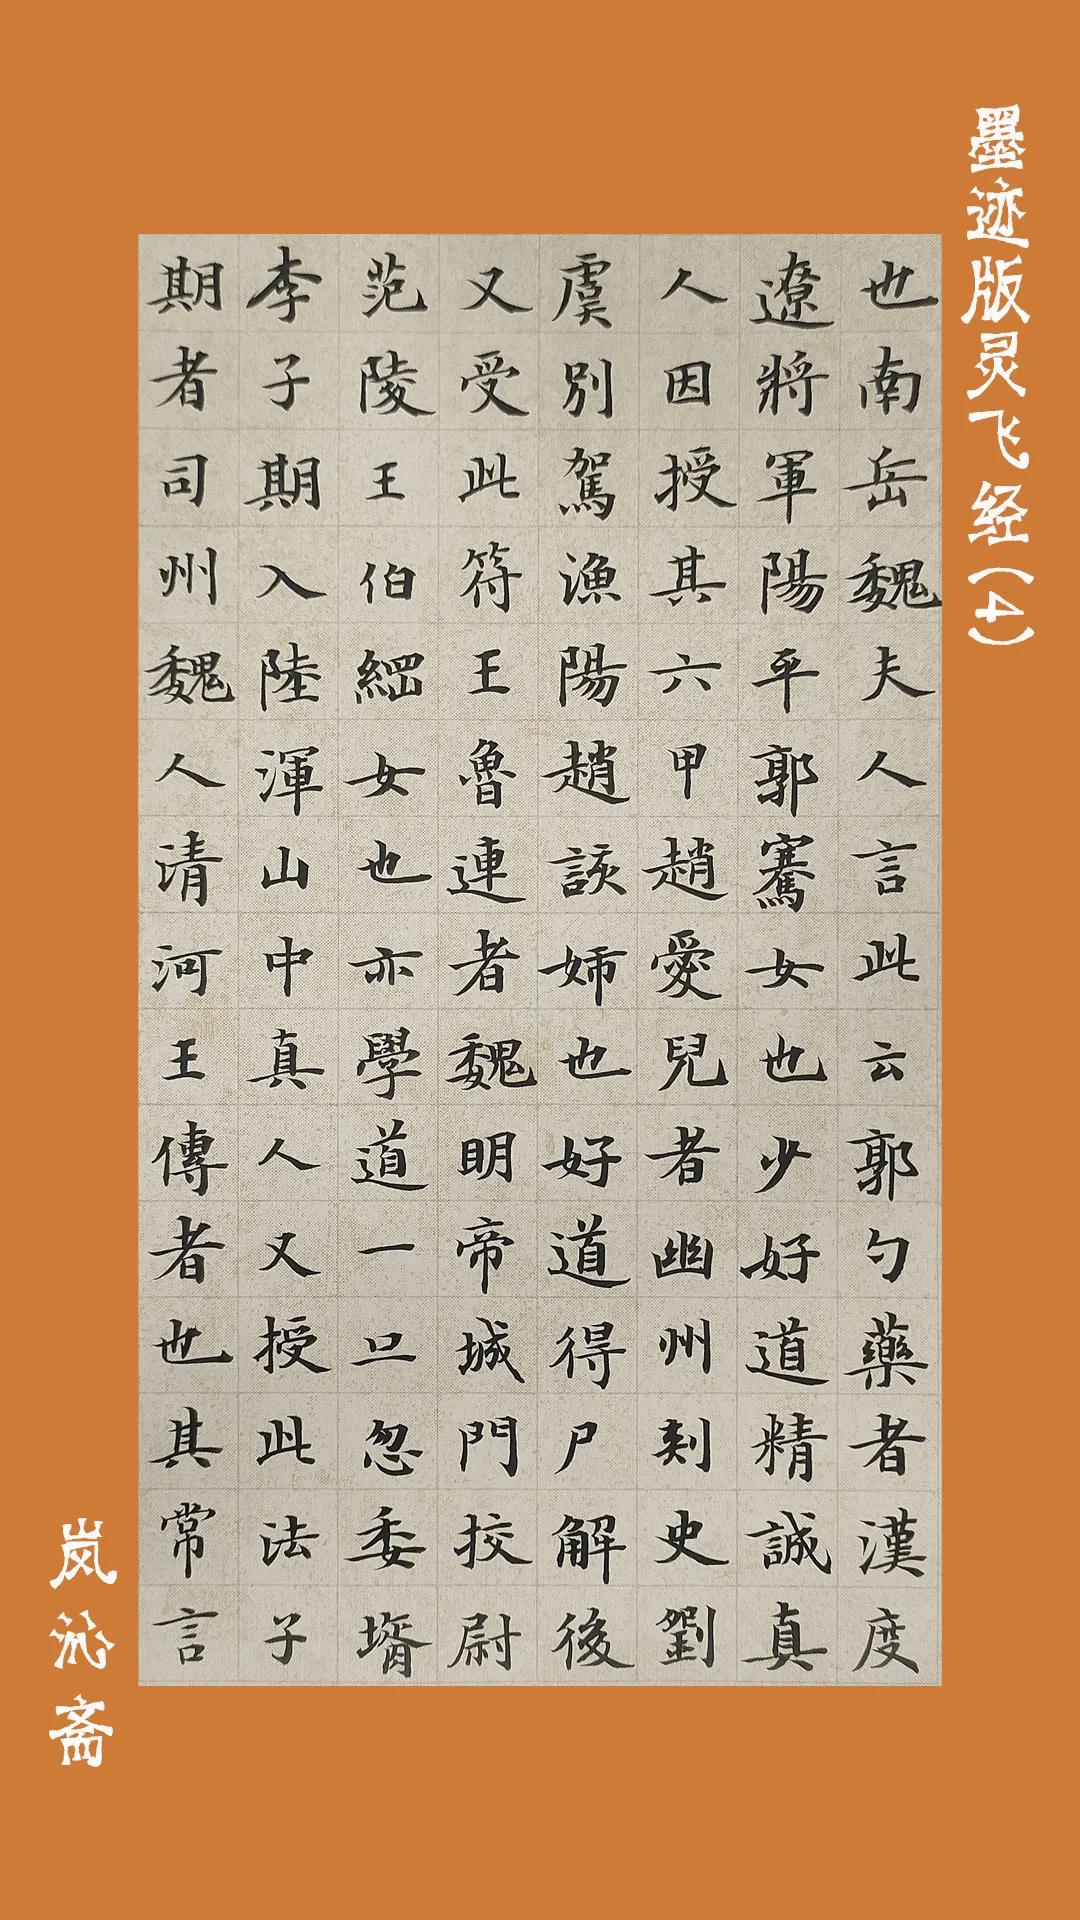 墨迹版灵飞经(4)
也南岳魏夫人言此云郭勺藥者漢度
遼將軍陽平郭騫女也少好道精誠真
人因授其六甲趙愛兒者幽州刾史劉
虞別駕漁陽趙該姉也好道得尸解後
又受此符王魯連者魏明帝城門挍尉
范陵王伯綱女也亦學道一旦忽委壻
李子期入陸渾山中真人又授此法子
期者司州魏人清河王傳者也其常言
岚沁斋